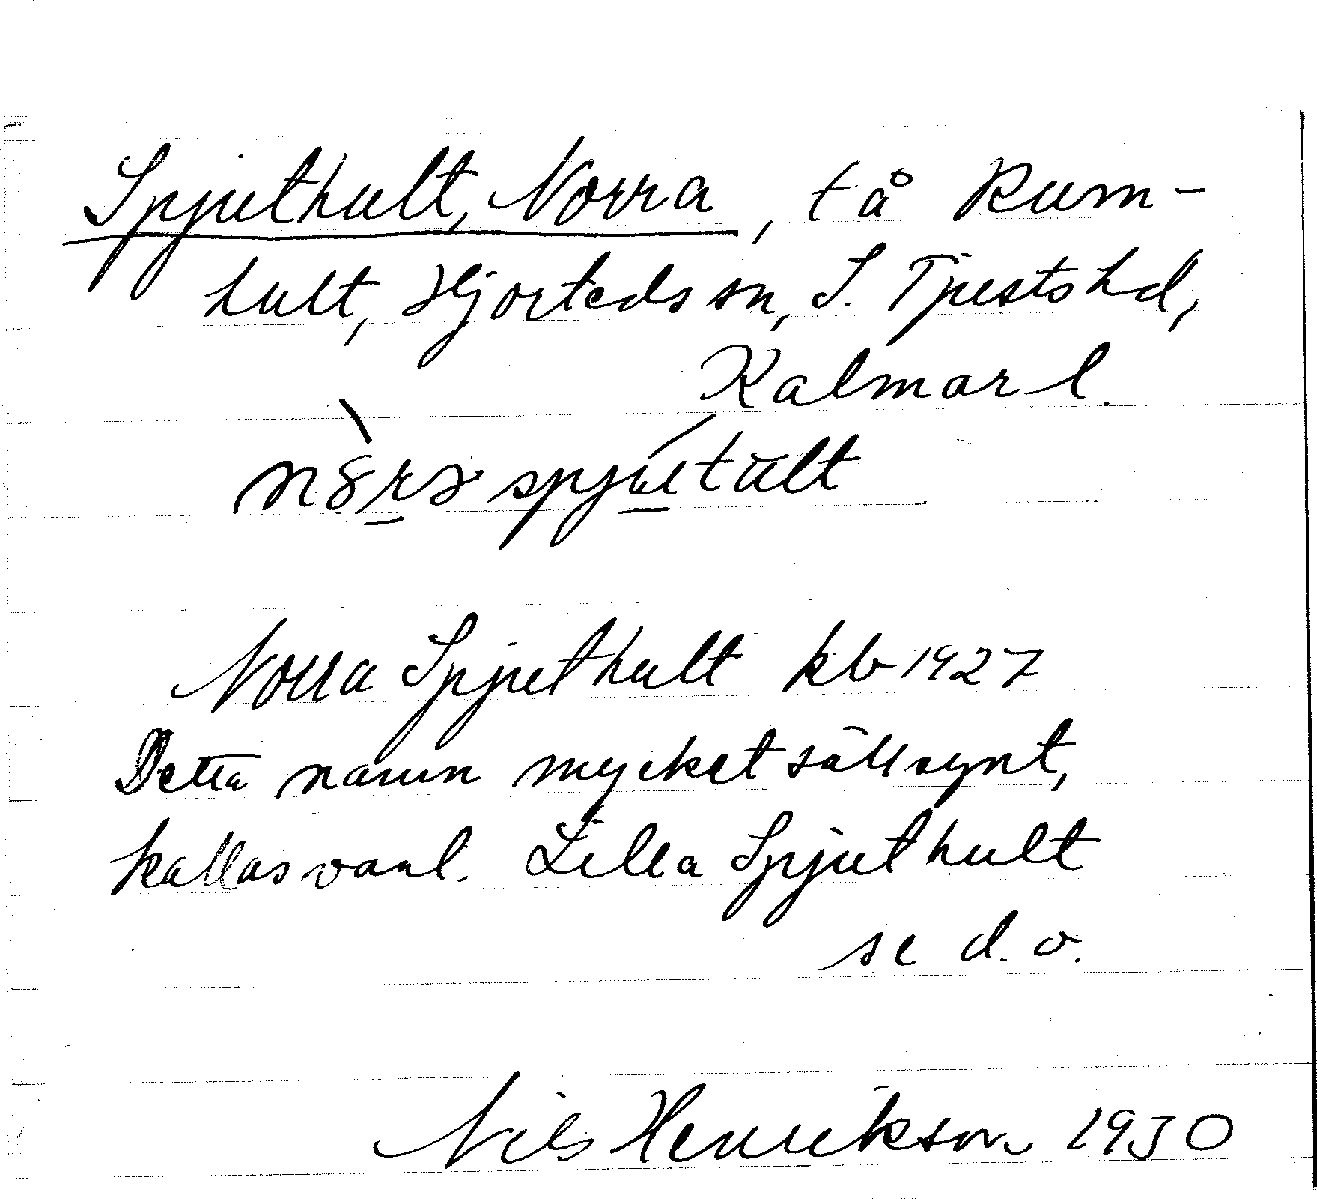 Spjuthult, Norra, tå Rum-
hult, Hjorteds sn, S. Tjusts hd,
Kalmar l.
spjutält
Norra Spjuthult kb 1927
Detta namn mycket sällsynt,
kallas vanl. Lilla Spjuthult
se d. o.
Nils Henrikson 1930